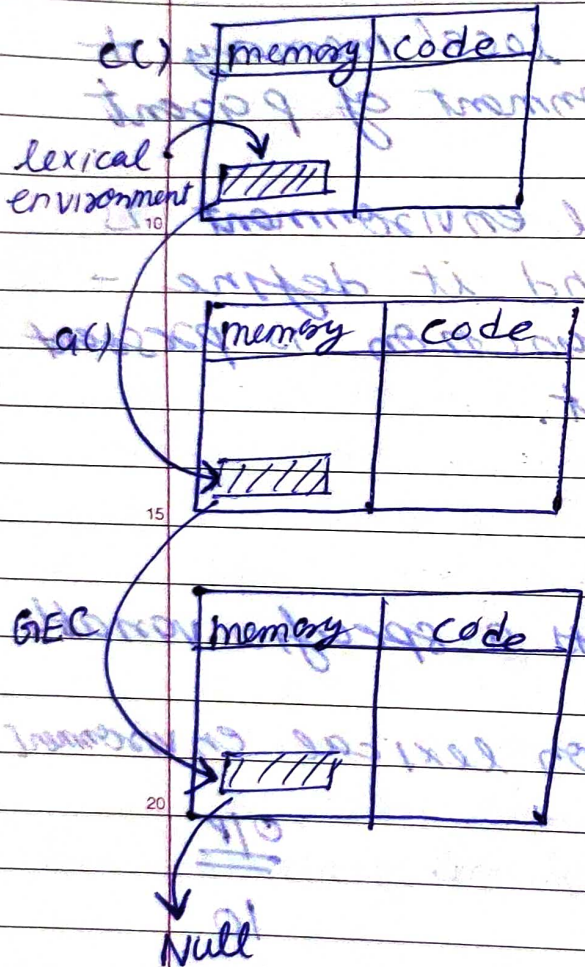 c() memory code
lexical
environment
10
a() memory code
15
GEC memory code
20
Null